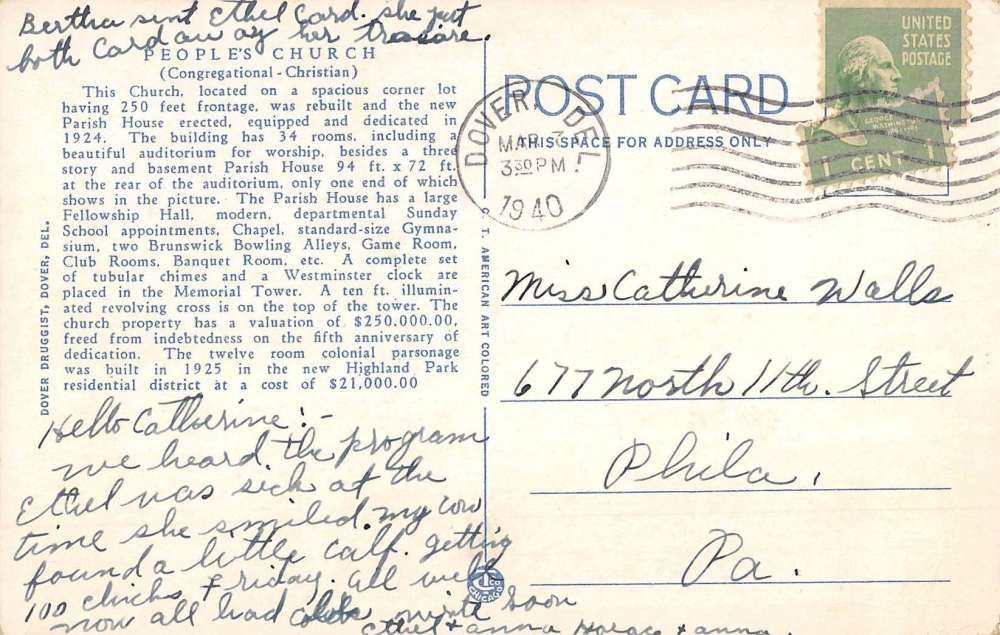 Bertha sent Ethel Card. she put
both Card away her treasure.
PEOPLE'S CHURCH
(Congregational - Christian)
This Church, located on a spacious corner lot
having 250 feet frontage, was rebuilt and the new
Parish House erected, equipped and dedicated in
1924. The building has 34 rooms, including a
beautiful auditorium for worship, besides a three
story and basement Parish House 94 ft. x 72 ft.
at the rear of the auditorium, only one end of which
shows in the picture. The Parish House has a large
Fellowship Hall, modern, departmental Sunday
School appointments, Chapel, standard-size Gymna-
sium, two Brunswick Bowling Alleys, Game Room,
Club Rooms, Banquet Room, etc. A complete set
of tubular chimes and a Westminster clock are
placed in the Memorial Tower. A ten ft. illumin-
ated revolving cross is on the top of the tower. The
church property has a valuation of $250.000.00,
freed from indebtedness on the fifth anniversary of
dedication. The twelve room colonial parsonage
was built in 1925 in the new Highland Park
residential district at a cost of $21,000.00
DOVER DRUGGIST, DOVER, DEL.
Hello Catherine:-
we heard the program
Ethel was sick at the
time she smiled. my cow
found a little calf. getting
100 chicks Friday. all well
now all had write soon
Ethel + anna Horace + anna
C. T. AMERICAN ART COLORED
CHICAGO
POST CARD
THIS SPACE FOR ADDRESS ONLY
DOVER, DEL.
MAR 3
3 30 PM
1940
UNITED
STATES
POSTAGE
GEORGE
WASHINGTON
1 CENT 1
Miss Catherine Walls
677 North 11th. Street
Phila,
Pa.